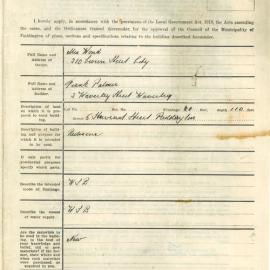 I hereby apply, in accordance with the provisions of the Local Government Act, 1919, the Acts amending
the same, and the Ordinances framed thereunder, for the approval of the Council of the Municipality of
Paddington of plans, sections and specifications relating to the building described hereunder.
Full Name and
Address of
Owner.
310 Crown Street City
Full Name and
Address of
Builder.
Frank Palmer
3 Waverley Street Waverley
Description of land
Lot No.
Sec.
Frontage 20 feet, Depth 110 feet
6 Street Paddington
Description of build-
ing and purpose for
which it is intended
to be used.
If only partly for
residential purposes
specify which parts.
Describe the intended
mode of drainage.
W.S.B.
Describe the means
of water supply.
W S B
Are the materials to
be used in the build-
ing, to the best of
your knowledge and
belief, old or new
materials? If the
former, state where
and when such materials
were purchased or
acquired by you.
New